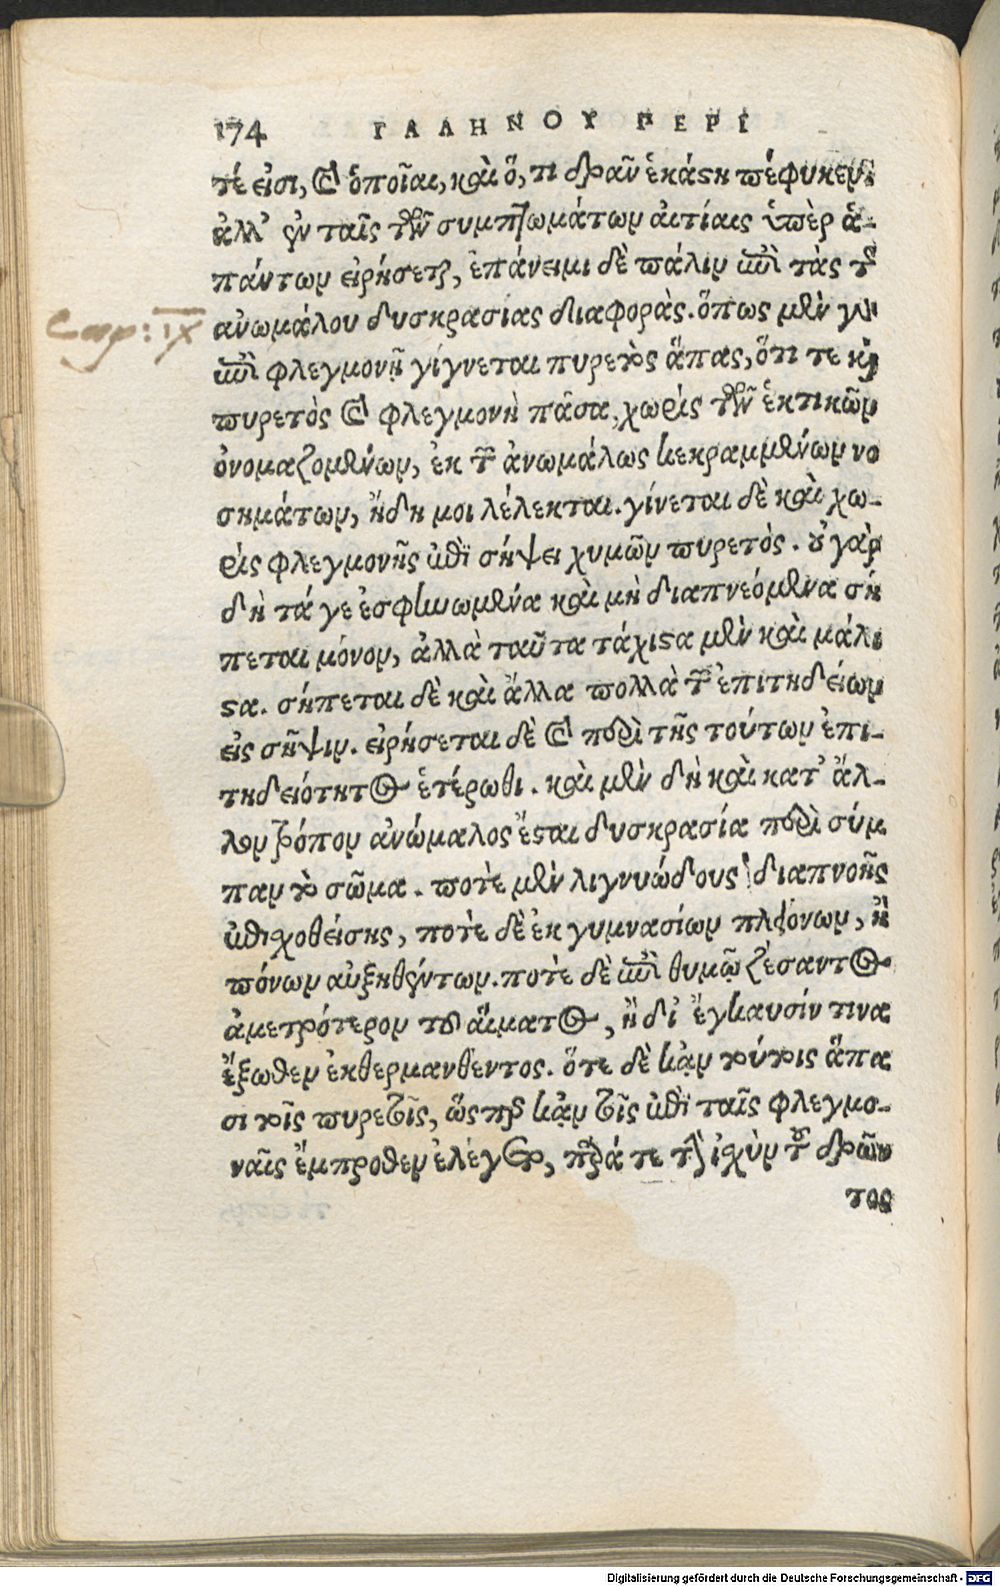 174 ΓΑΛΗΝΟΥ ΠΕΡΙ
τέ εἰσι, καὶ ὁποῖαι, καὶ ὅ, τι δρᾶν ἑκάστη πέφυκεν.
ἀλλ' ἐν ταῖς τῶν συμπτωμάτων αἰτίαις ὑπὲρ ἁ-
πάντων εἰρήσεται, ἐπάνειμι δὲ πάλιν ἐπὶ τὰς τῆς
ἀνωμάλου δυσκρασίας διαφορὰς. ὅπως μὲν γὰρ
Cap: IX
ἐπὶ φλεγμονῇ γίγνεται πυρετὸς ἅπας, ὅτι τε καὶ
πυρετὸς καὶ φλεγμονὴ πᾶσα, χωρὶς τῶν ἑκτικῶν
ὀνομαζομένων, ἐκ τῶν ἀνωμάλως κεκραμμένων νο
σημάτων, ἤδη μοι λέλεκται. γίνεται δὲ καὶ χω-
ρὶς φλεγμονῆς ἐπὶ σήψει χυμῶν πυρετὸς. οὐ γὰρ
δὴ τά γε ἐσφηνωμένα καὶ μὴ διαπνεόμενα σή
πεται μόνον, ἀλλὰ ταῦτα τάχιστα μὲν καὶ μάλι
στα. σήπεται δὲ καὶ ἄλλα πολλὰ τῶν ἐπιτηδείων
εἰς σῆψιν. εἰρήσεται δὲ καὶ περὶ τῆς τούτων ἐπι-
τηδειότητος ἑτέρωθι. καὶ μὲν δὴ καὶ κατ' ἄλ-
λον τρόπον ἀνώμαλος ἔσται δυσκρασία περὶ σύμ
παν τὸ σῶμα. ποτὲ μὲν λιγνυώδους διαπνοῆς
ἐπισχοθείσης, ποτὲ δὲ ἐκ γυμνασίων πλειόνων, ἢ
πόνων αὐξηθέντων. ποτὲ δὲ ἐπὶ θυμῷ ζέσαντος
ἀμετρότερον τοῦ αἵματος, ἢ δι' ἔγκαυσίν τινα
ἔξωθεν ἐκθερμανθέντος. ὅτε δὲ κᾀν τούτοις ἅπα
σι τοῖς πυρετοῖς, ὥσπερ κᾀν τοῖς ἐπὶ ταῖς φλεγμο-
ναῖς ἔμπροθεν ἐλέγετο, παρά τε τὴν ἰχὺν τοῦ δρῶν
τος
Digitalisierung gefördert durch die Deutsche Forschungsgemeinschaft - DFG